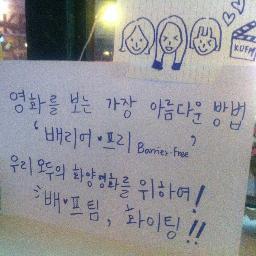 KUFM
영화를 보는 가장 아름다운 방법
'배리어·프리 Barrier-Free'
우리 모두의 화양영화를 위하여!
배·프팀, 화이팅!!